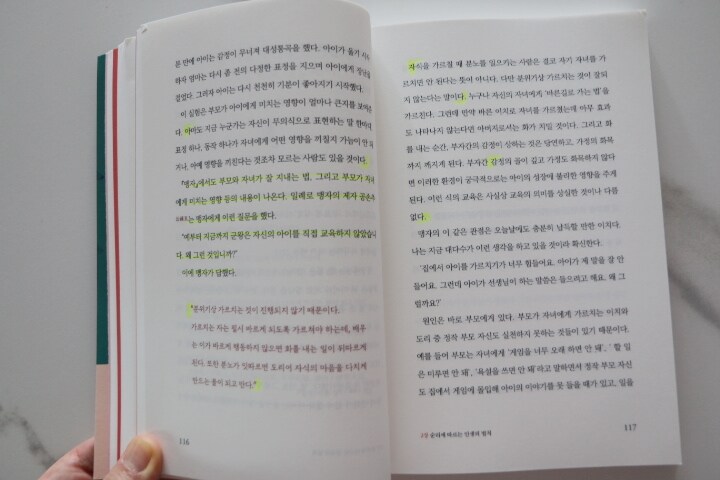 문 안에 아이는 감정이 무너져 대성통곡을 했다. 아이가 울기 시작
하자 엄마는 다시 총 천의 다정한 표정을 지으며 아이에게
다. 그러자 아이는 다시 천천히 기분이 좋아지기 시작했다.
이 실험은 부모가 아이에게 미치는 영향이 얼마나 큰지를 보여준
다. 아마도 지금 누군가는 자신이 무의식으로 표현하는 말 한마디,
표정 하나, 동작 하나가 자녀에게 어떤 영향을 끼칠지 가늠이 안
지거나, 아예 영향을 끼친다는 것조차 모르는 사람도 있을 것이다.
『맹자』에서도 부모와 자녀가 잘 지내는 법, 그리고 부모가 자녀
에게 미치는 영향 등의 내용이 나온다. 일례로 맹자의 제자 공손추
는 맹자에게 이런 질문을 했다.
"예부터 지금까지 군왕은 자신의 아이를 직접 교육하지 않았습니
다. 왜 그런 것입니까?"
이에 맹자가 답했다.
"분위기상 가르치는 것이 진행되지 않기 때문이다.
가르치는 자는 필시 바르게 되도록 가르쳐야 하는데, 배우
는 이가 바르게 행동하지 않으면 화를 내는 일이 뒤따르게
된다. 또한 분노가 잇따르면 도리어 자식의 마음을 다치게
만드는 꼴이 되고 만다."
116
자식을 가르칠 때 분노를 일으키는 사람은 결코 자기 자녀를 가
르치면 안 된다는 뜻이 아니다. 다만 분위기상 가르치는 것이 잘되
지 않는다는 말이다. 누구나 자신의 자녀에게 '바른길로 가는 법'을
가르친다. 그런데 만약 바른 이치로 자녀를 가르쳤는데 아무 효과
도 나타나지 않는다면 아버지로서는 화가 치밀 것이다. 그리고 화
를 내는 순간, 부자간의 감정이 상하는 것은 당연하고, 가정의 화목
까지 깨지게 된다. 부자간 감정의 골이 깊고 가정도 화목하지 않다
면 이러한 환경이 궁극적으로는 아이의 성장에 불리한 영향을 주게
된다. 이런 식의 교육은 사실상 교육의 의미를 상실한 것이나 다름
없다.
맹자의 이 같은 관점은 오늘날에도 충분히 납득할 만한 이치다.
나는 지금 대다수가 이런 생각을 하고 있을 것이라 확신한다.
'집에서 아이를 가르치기가 너무 힘들어요. 아이가 제 말을 잘 안
들어요. 그런데 아이가 선생님이 하는 말씀은 들으려고 해요. 왜 그
럴까요?'
원인은 바로 부모에게 있다. 부모가 자녀에게 가르치는 이치와
도리 중 정작 부모 자신도 실천하지 못하는 것들이 있기 때문이다.
예를 들어 부모는 자녀에게 '게임을 너무 오래 하면 안 돼', '할 일
은 미루면 안 돼', '욕설을 쓰면 안 돼'라고 말하면서 정작 부모 자신
도 집에서 게임에 몰입해 아이의 이야기를 못 들을 때가 있고, 일을
4장 순리에 따르는 인생의 법칙
117